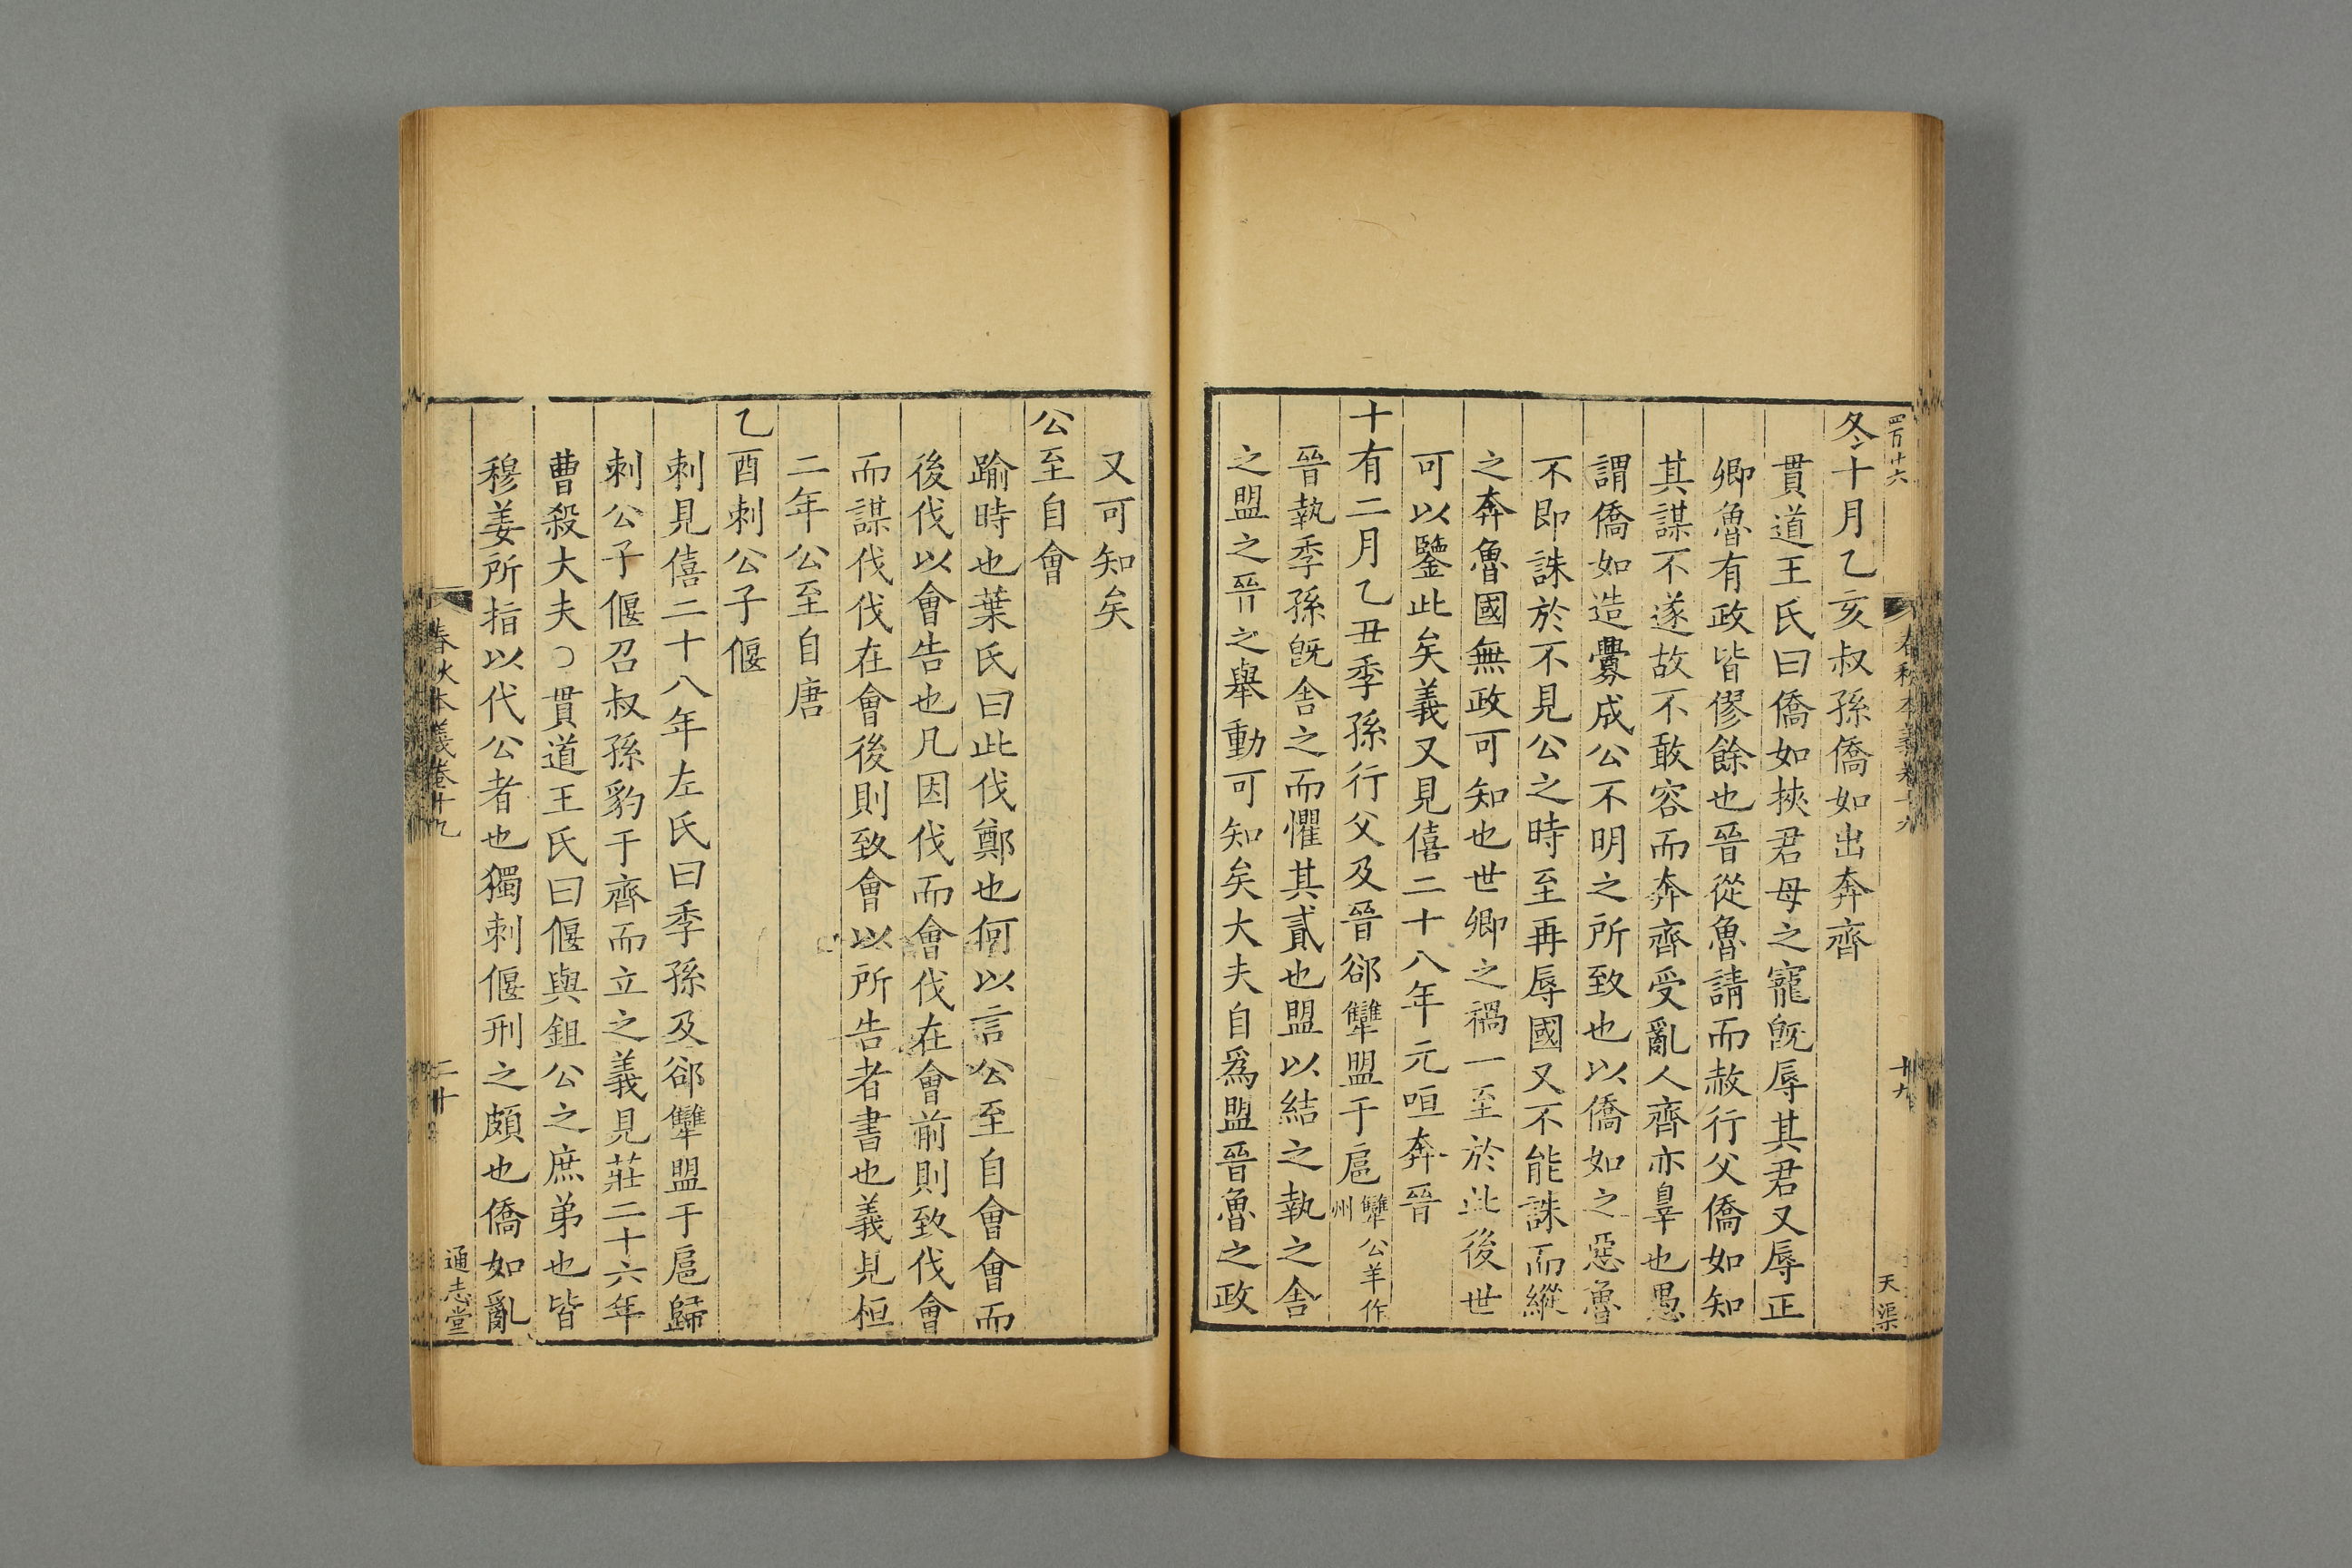 四百十六
春秋本義卷十九
十九
天渠
冬十月乙亥叔孫僑如出奔齊
貫道王氏曰僑如挾君母之寵旣辱其君又辱正
卿魯有政皆僇餘也晉從魯請而赦行父僑如知
其謀不遂故不敢容而奔齊受亂人齊亦辠也愚
謂僑如造釁成公不明之所致也以僑如之惡魯
不即誅於不見公之時至再辱國又不能誅而縱
之奔魯國無政可知也世卿之禍一至於此後世
可以鑒此矣義又見僖二十八年元咺奔晉
十有二月乙丑季孫行父及晉郤犫盟于扈犫公羊作州
晉執季孫旣舍之而懼其貳也盟以結之執之舍
之盟之晉之舉動可知矣大夫自爲盟晉魯之政
又可知矣
公至自會
踰時也葉氏曰此伐鄭也何以言公至自會會而
後伐以會告也凡因伐而會伐在會前則致伐會
而謀伐伐在會後則致會以所告者書也義見桓
二年公至自唐
乙酉刺公子偃
刺見僖二十八年左氏曰季孫及郤犫盟于扈歸
刺公子偃召叔孫豹于齊而立之義見莊二十六年
曹殺大夫○貫道王氏曰偃與鉏公之庶弟也皆
穆姜所指以代公者也獨刺偃刑之頗也僑如亂
春秋本義卷十九
二十
通志堂